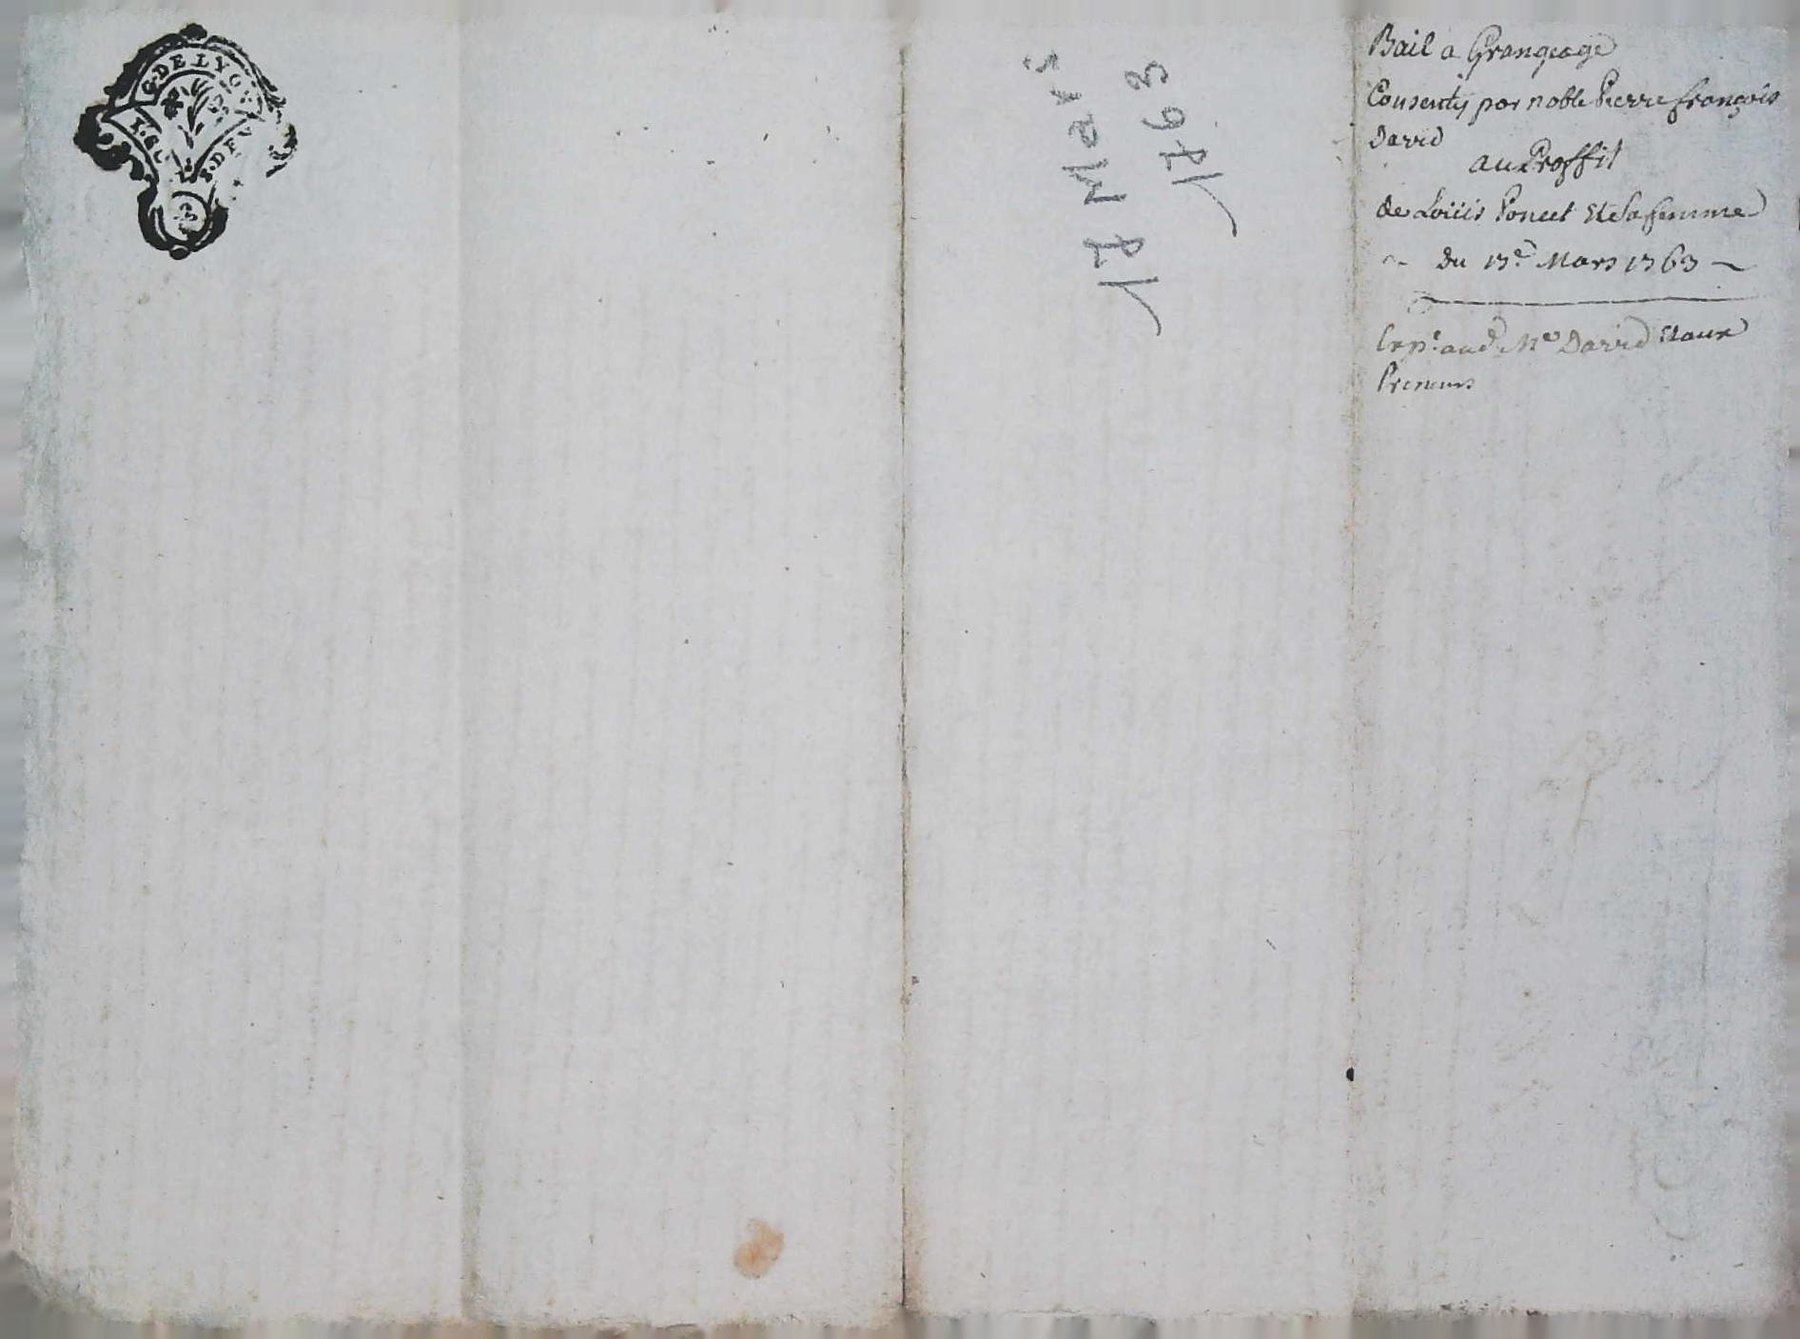 G. DE LYON
17 Mars
1763
Bail a Grangeage
Consenty par noble Pierre françois
David
au Proffit
de Loüis Poncet Et Sa femme
du 17e. Mars 1763
Exp.e aud. Me David Et aux
Preneurs